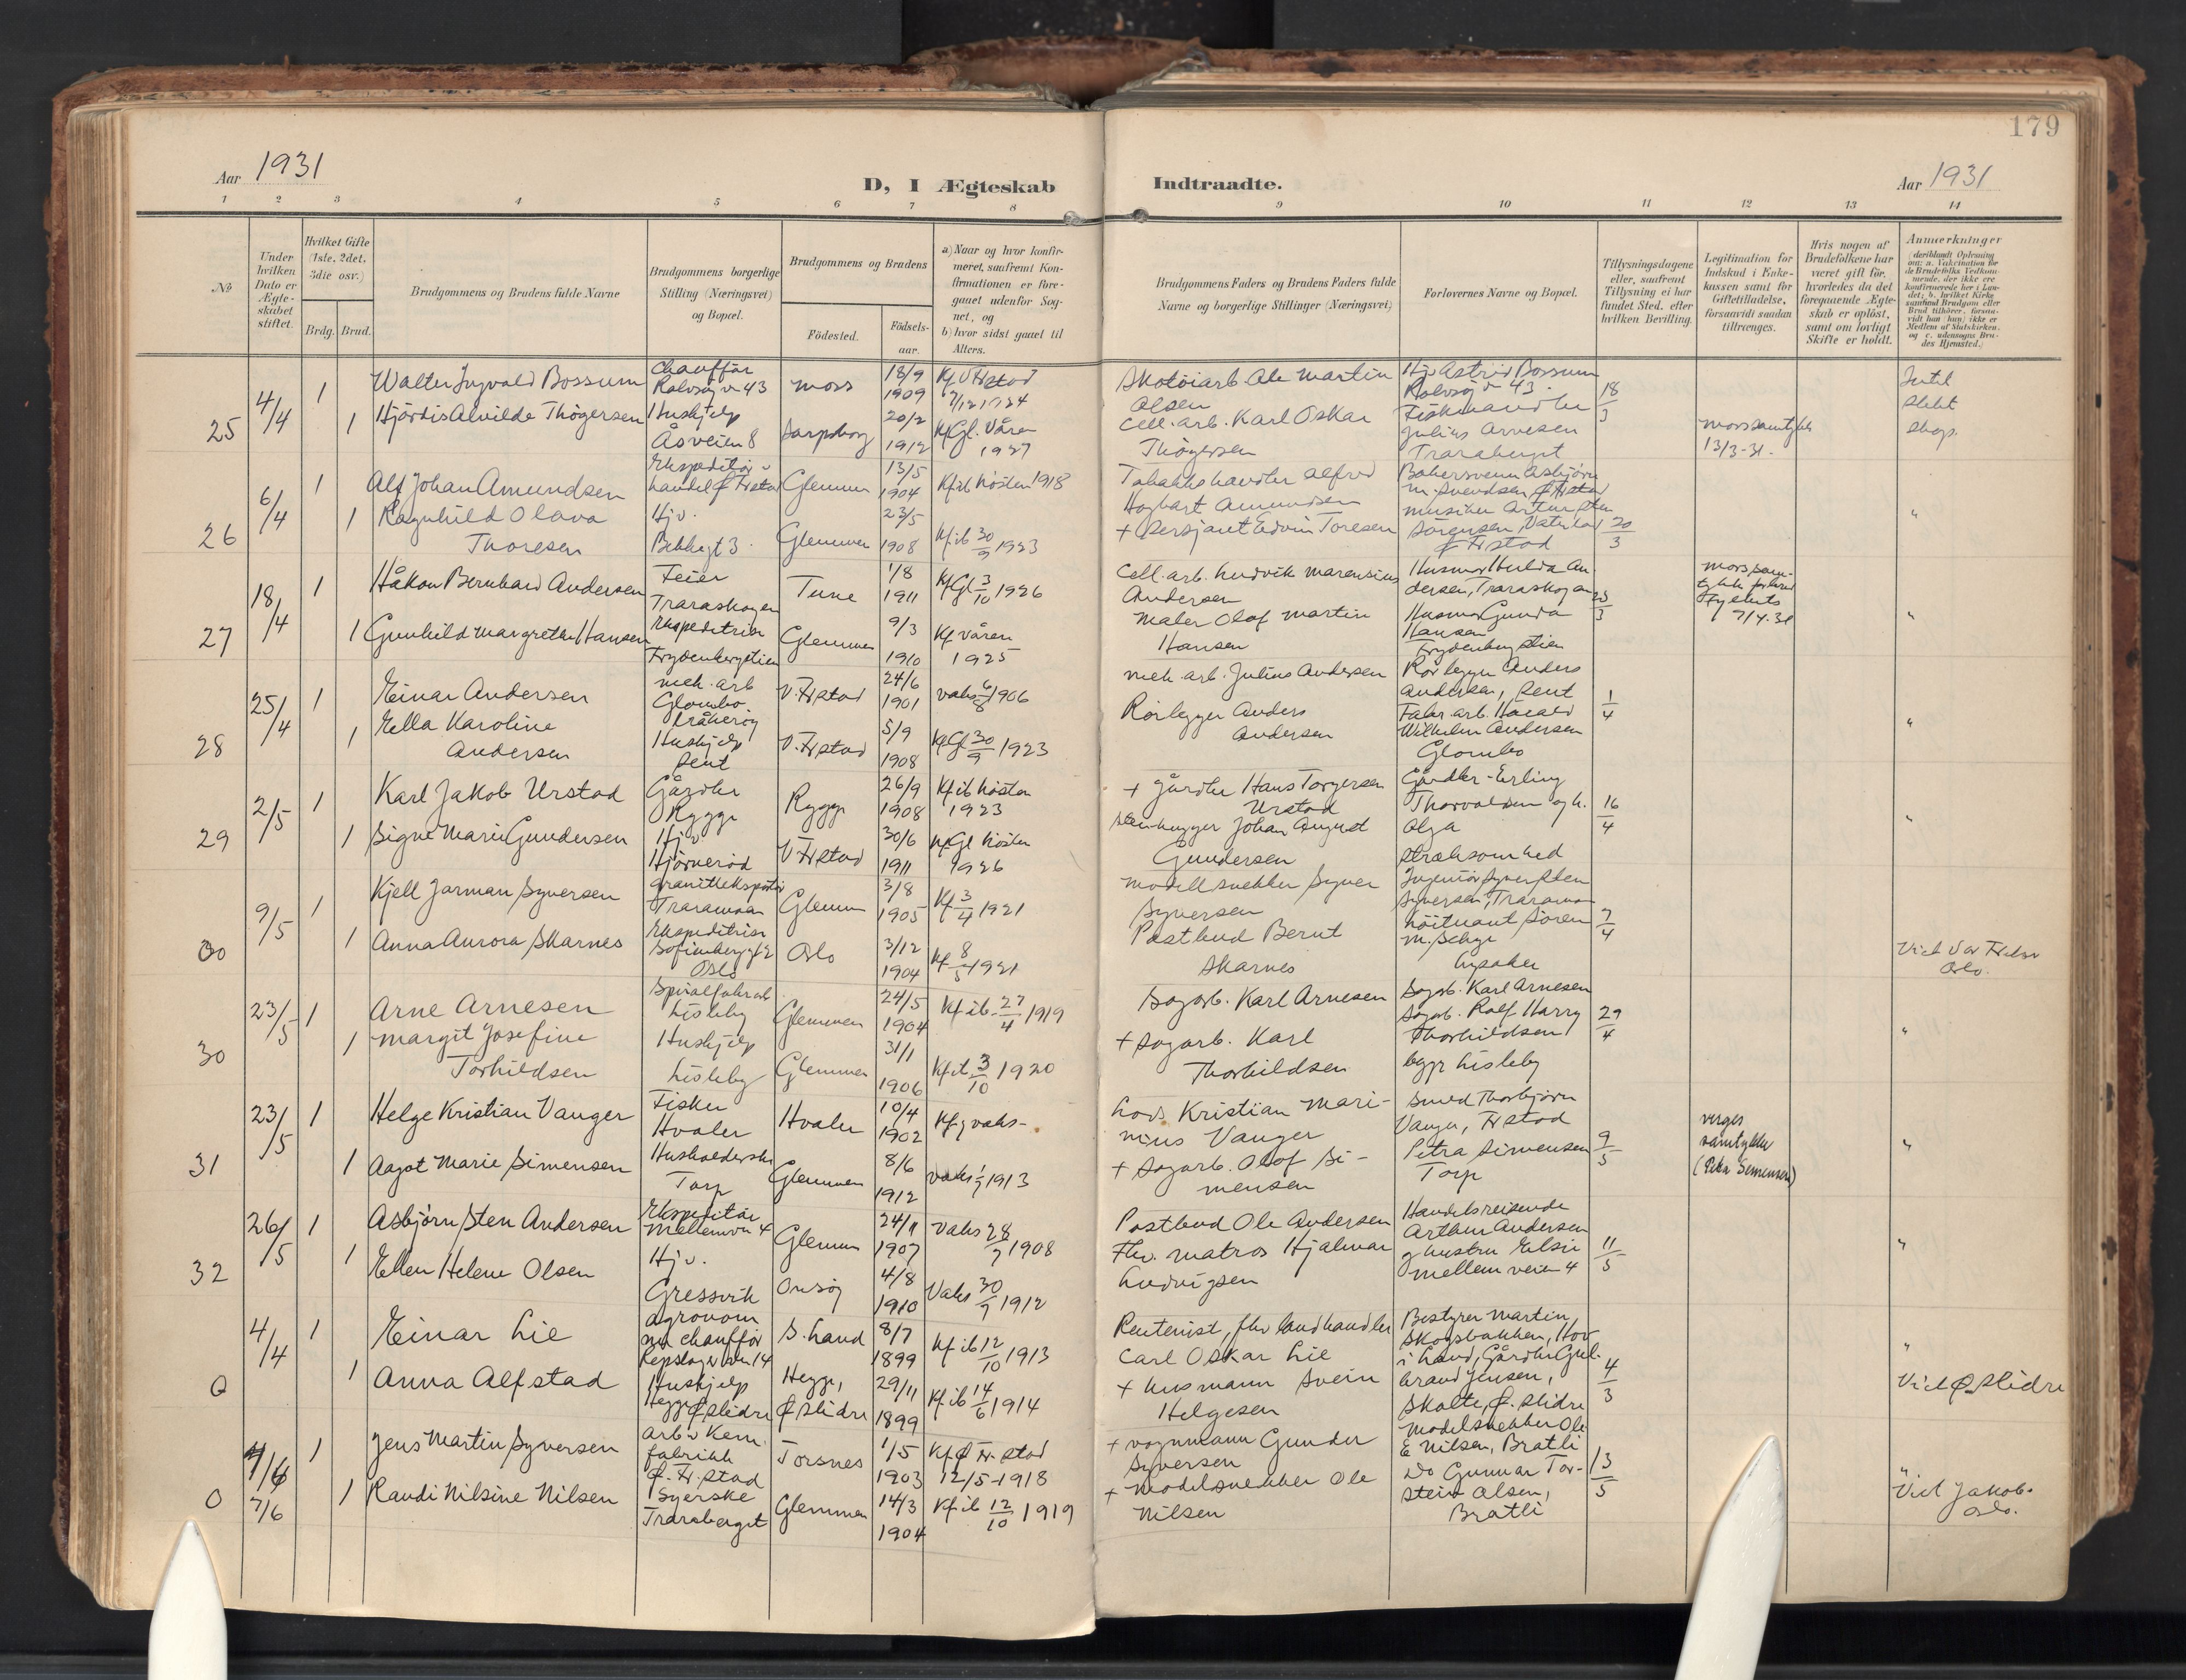 179
Aar 1931
D, I Ægteskab
Indtraadte.
Aar 1931
1 2 3 4 5 6 7 8 9 10 11 12 13 14
№
Under hvilken Dato er Ægteskabet stiftet.
Hvilket Gifte (1ste, 2det, 3die osv.)
Brdg. Brud.
Brudgommens og Brudens fulde Navne
Brudgommens borgerlige Stilling (Næringsvei) og Bopæl.
Brudgommens og Brudens
Födested.
Födsels-aar.
a) Naar og hvor konfirmeret, saafremt Konfirmationen er foregaaet udenfor Sognet, og
b) hvor sidst gaaet til Alters.
Brudgommens Faders og Brudens Faders fulde Navne og borgerlige Stillinger (Næringsvei)
Forlovernes Navne og Bopæl.
Tillysningsdagene eller, saafremt Tillysning ei har fundet Sted, efter hvilken Bevilling.
Legitimation for Indskud i Enkekassen samt for Giftetilladelse, forsaavidt saadan tiltrænges.
Hvis nogen af Brudefolkene har været gift för, hvorledes da det foregaaende Ægteskab er oplöst, samt om lovligt Skifte er holdt.
Anmerkninger
25
4/4
1 Walter Ingvald Bossum
Chauffør
Rolvsøyv 43
Moss
18/9 1909
Skotøiarb. Ole Martin Olsen
Hjv Astrid Bossum
Rolvsøyv 43.
18/3
Intet
slekt
skap.
1 Hjørdis Alvilde Thøgersen
Huskjelp
Åsveien 8
Sarpsborg
20/2 1912
Kf Gl. Våren 1927
Cell. arb. Karl Oskar Thøgersen
Fiskehandler
Julius Arvesen
Traraberget
Mors samtykke
13/3-31.
26
6/4
1 Alf Johan Amundsen
Glemmen
13/5 1904
Kf ib høsten 1918
Tobakkshandler Alfred Hagbart Amundsen
Bakersvenn Asbjørn
M. Svendsen, Ø Frstad
20/3
"
1 Ragnhild Olava Thoresen
Hjv.
Glemmen
23/5 1908
Kf ib 30/9 1923
+ Sersjant Edvin Toresen
Ø Frstad
27
18/4
1 Håkon Bernhard Andersen
Feier
Traraskogen
Tune
1/8 1911
Kf Gl 3/10 1926
Cell. arb. Ludvik Marensius Andersen
Husmor Hulda Andersen, Traraskogen
"
1 Gunhild Margrethe Hansen
Ekspeditrise
Frydenbergstien
Glemmen
9/3 1910
Kf våren 1925
Maler Olaf Martin Hansen
Husmor Gunda
Hansen
Frydenbergstien
7/4.31
28
25/4
1 Einar Andersen
mek. arb
Glombo
Kråkerøy
V. Frstad
24/6 1901
vaks 6/8 1906
mek. arb. Julius Andersen
Rørlegger Anders
Andersen, Sent
1/4
"
1 Ella Karoline Andersen
Huskjelp
Sent
V. Frstad
5/9 1908
Kf Gl 30/9 1923
Rørlegger Anders Andersen
Fabr. arb. Harald
Wilhelm Andersen
Glombo
29
2/5
1 Karl Jakob Urstad
Gårdbr
Rygge
Rygge
26/9 1908
Kf ib høsten 1923
+ Gårdbr Hans Torgersen Urstad
Gårdbr. Erling
Thorvaldsen og h.
Olga
16/4
"
1 Signe Marie Gundersen
Hjv.
Hjørnerød
V Frstad
30/6 1911
Kf Gl høsten 1926
Stenhugger Johan August Gundersen
30
9/5
1 Kjell Jarman Syversen
Traramoen
Glemmen
3/8 1905
Kf 3/4 1921
Modellsnekker Syver Syversen
Ingeniør Syver Sten
Syversen, Traramoen
7/4
1 Anna Aurora Skarnes
Ekspeditrise
Oslo
Oslo
3/12 1904
Kf 8/5 1921
Postbud Bernt Skarnes
Viet Vor Frelser
Oslo.
30
23/5
1 Arne Arnesen
Spiralfabr.arb
Lisleby
Glemmen
24/5 1904
Kf ib. 27/4 1919
Sagarb. Karl Arnesen
Sagarb. Karl Arnesen
29/4
"
1 Margit Josefine Torhildsen
Huskjelp
Lisleby
Glemmen
31/1 1906
Kf ib 3/10 1920
+ Sagarb. Karl Thorhildsen
Sagarb. Rolf Harry
Thorhildsen
begge Lisleby
31
23/5
1 Helge Kristian Vauger
Fisker
Hvaler
Hvaler
10/4 1902
Kf, vaks -
Los Kristian Marinius Vauger
Smed Thorbjørn
Vauger, Frstad
9/5
verges
samtykke
"
1 Aagot Marie Simensen
Husholderske
Torp
Glemmen
8/6 1912
+ Sagarb. Olaf Simensen
Petra Simensen
Torp
32
26/5
1 Asbjørn Sten Andersen
Ekspeditør
Mellemvn 4
Glemmen
24/11 1907
Vaks 28/7 1908
Postbud Ole Andersen
Handelsreisende
Arthur Andersen
og hustru Elsie
Mellemveien 4
11/5
"
1 Ellen Helene Olsen
Hjv.
Gressvik
Onsøy
4/8 1910
Vaks 30/9 1912
Fhv. matros Hjalmar Ludvigsen
0
4/4
1 Einar Lie
agronom
nu chauffør
Repslagerveien 14
S. Land
8/7 1899
Kf ib 12/10 1913
Rentenist, fhv landhandler Carl Oskar Lie
Bestyrer Martin
Skogsbakken, Hov
i Land, Gårdbr Gulbrand Jensen,
Skolte, Ø. Slidre
4/3
"
1 Anna Alfstad
Huskjelp
Hegge Ø Slidre
Hegge, Ø Slidre
29/11 1899
Kf ib 14/6 1914
+ Husmann Svein Helgesen
Viet Ø. Slidre
0
7/6
7/6
1 Jens Martin Syversen
arb v Kem.
fabrikk
Ø. Fr. stad
Torsnes
1/5 1903
Kf Ø Fr. stad
12/5-1918
+ Vognmann Gunder Syversen
Modelsnekker Ole
E Nilsen, Bratli
13/5
"
1 Randi Nilsine Nilsen
Syerske
Traraberget
Glemmen
14/3 1904
Kf ib 12/10 1919
+ Modelsnekker Ole Nilsen
Do Gunnar Torstein Olsen,
Bratli
Viet Jakob.
Oslo.